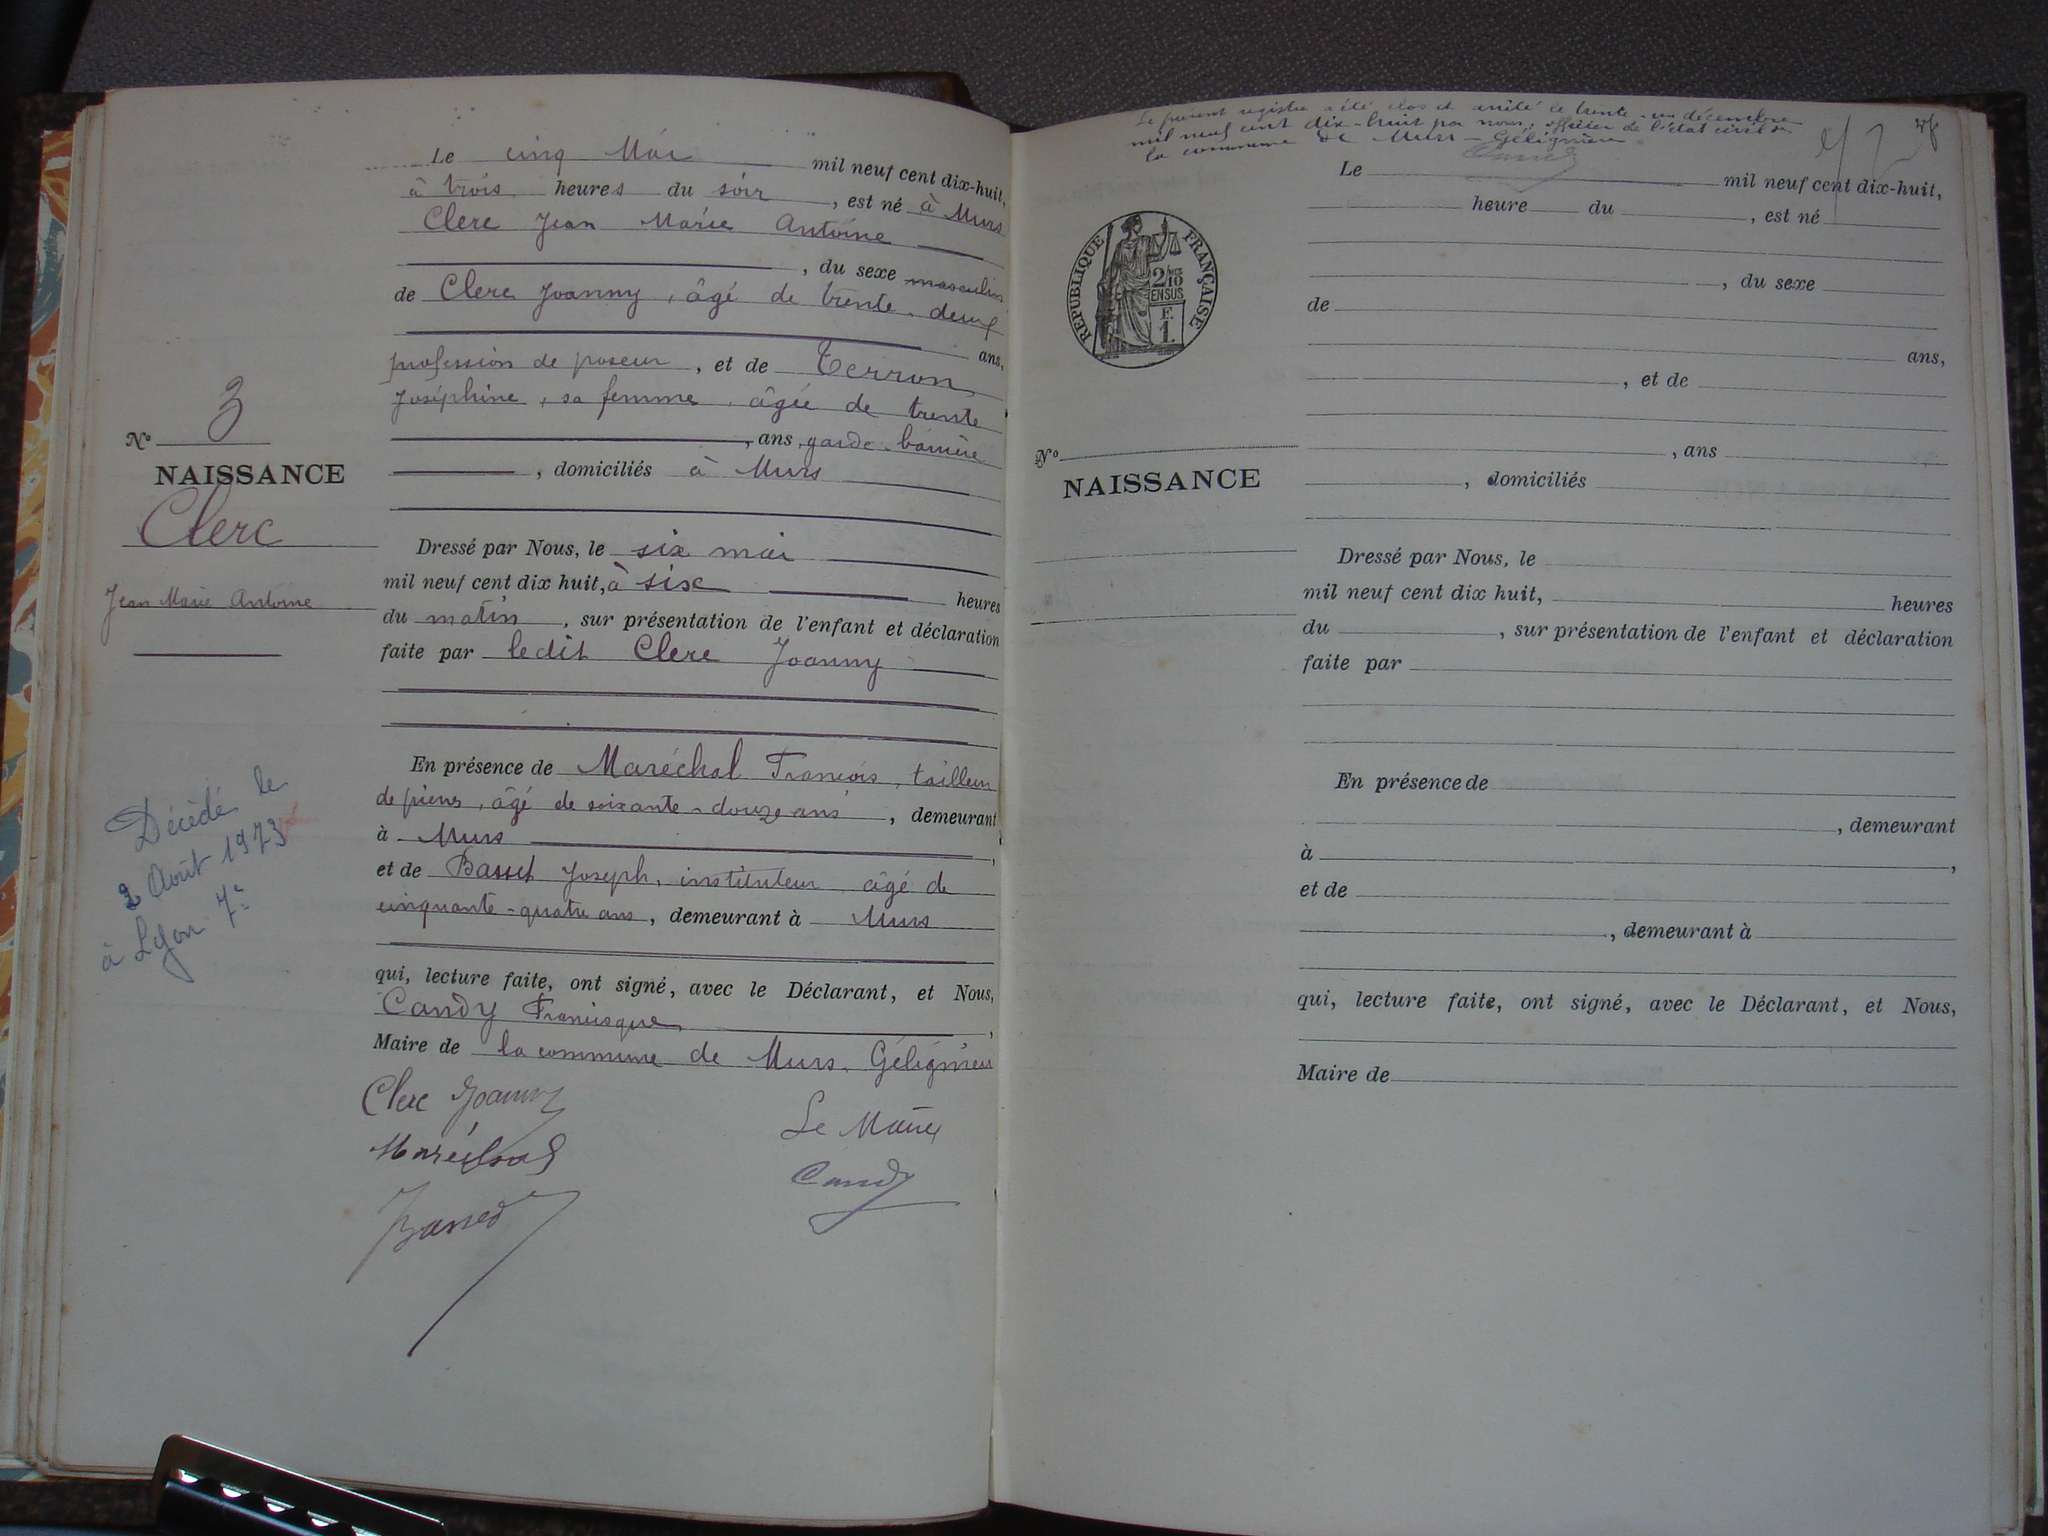 Le cinq Mai mil neuf cent dix-huit,
à trois heures du soir, est né à Murs
Clerc Jean Marie Antoine
, du sexe masculin
de Clerc Joanny, âgé de trente-deux
ans,
profession de poseur, et de Terron
Joséphine, sa femme, âgée de trente
, ans, garde-barrière
, domiciliés à Murs
Nº 3
NAISSANCE
Clerc
Jean Marie Antoine
Dressé par Nous, le six mai
mil neuf cent dix huit, à six heures
du matin, sur présentation de l'enfant et déclaration
faite par ledit Clerc Joanny
En présence de Maréchal François, tailleur
de pierres, âgé de soixante-douze ans, demeurant
à Murs,
et de Basset Joseph, instituteur, âgé de
cinquante-quatre ans, demeurant à Murs
Décédé le
2 Août 1973
à Lyon 7e
qui, lecture faite, ont signé, avec le Déclarant, et Nous,
Candy Francisque,
Maire de la commune de Murs-Gélignieux
Clerc Joanny
Maréchal
Basset
Le Maire
Candy
Le présent registre a été clos et arrêté le trente-un décembre
mil neuf cent dix-huit par nous, officier de l'état civil de
la commune de Murs-Gélignieux.
Candy
Le mil neuf cent dix-huit,
heure du , est né
, du sexe
de
ans,
, et de
, ans
, domiciliés
RÉPUBLIQUE FRANÇAISE
2/10
EN SUS
E.
1.
Nº
NAISSANCE
Dressé par Nous, le
mil neuf cent dix huit, heures
du , sur présentation de l'enfant et déclaration
faite par
En présence de
, demeurant
à ,
et de
, demeurant à
qui, lecture faite, ont signé, avec le Déclarant, et Nous,
Maire de